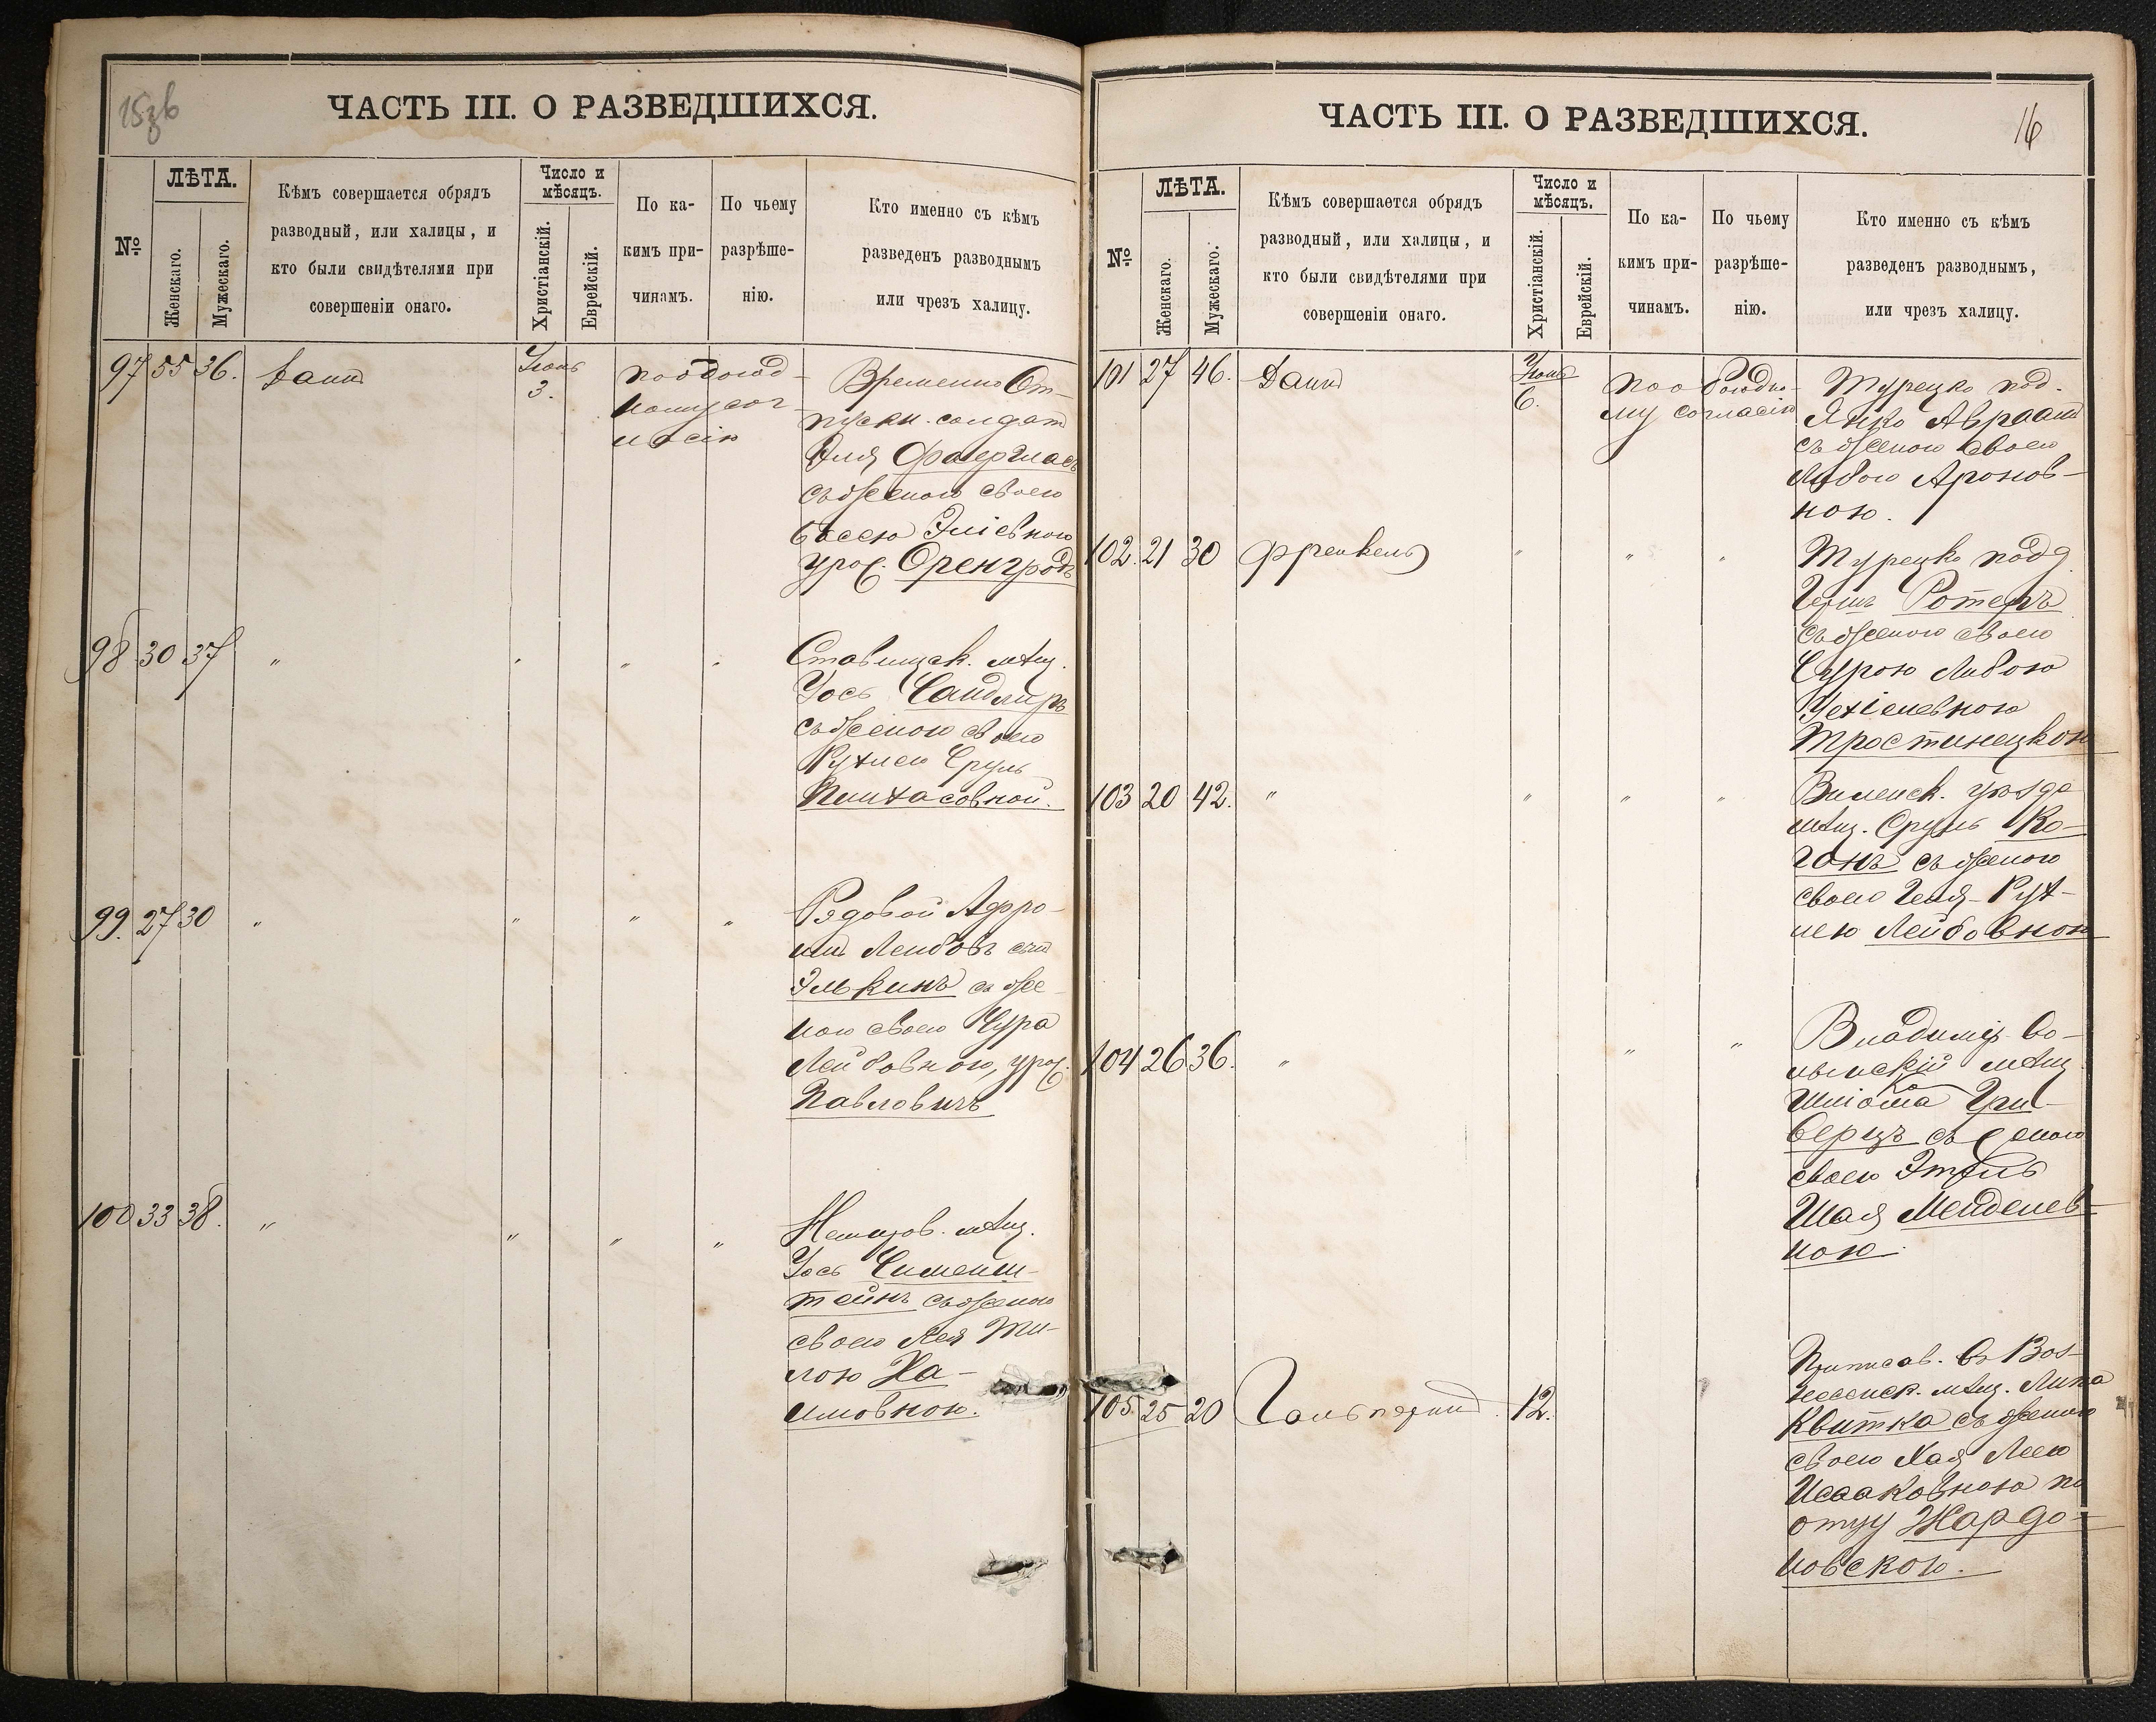 15об
ЧАСТЬ III. О РАЗВЕДШИХСЯ.
№
ЛѢТА.
Женскаго.
Мужескаго.
Кѣмъ совершается обрядъ
разводный, или халицы, и
кто были свидѣтелями при
совершеніи онаго.
Число и
мѣсяцъ.
Христіанскій.
Еврейскій.
По ка-
кимъ при-
чинамъ.
По чьему
разрѣше-
нію.
Кто именно съ кѣмъ
разведенъ разводнымъ
или чрезъ халицу.
97 55 36.
Іюнь
3.
По обоюд-
ному сог-
ласію
Временно От-
пускн. солдат
Эля
съ женою своею
Басею Эліевною
урож. Оренгродъ
98 30 37 " " " "
Ставищск. мѣщ.
Іось Сандлеръ
съ женою своею
Рухлею Сруль
Пинхасовной.
99. 27 30 " " " "
Рядовой Афро-
имъ Лейбовъ сынъ
Элькинъ съ же-
ною своею Сура
Лейбовною, урож.
Павловичъ
100 33 38. " " " "
Немиров. мѣщ.
Іось
тейнъ съ женою
своею Лея
лою Ха-
имовною.
16
ЧАСТЬ III. О РАЗВЕДШИХСЯ.
№
ЛѢТА.
Женскаго.
Мужескаго.
Кѣмъ совершается обрядъ
разводный, или халицы, и
кто были свидѣтелями при
совершеніи онаго.
Число и
мѣсяцъ.
Христіанскій.
Еврейскій.
По ка-
кимъ при-
чинамъ.
По чьему
разрѣше-
нію.
Кто именно съ кѣмъ
разведенъ разводнымъ,
или чрезъ халицу.
101 27 46.
Іюнь
6.
По обоюдно-
му согласію
Турецко под.
Янко Авраам
съ женою своею
Любою Аронов-
ною.
102. 21 30 Френкель " " "
Турецко подд
Герш Ротеръ
съ женою своею
Сурою Либою
Іехіелевною
Тростинецкою
103 20 42. " " " "
Виленск. уѣзда
мѣщ. Сруль Ко-
ганъ съ женою
своею Геня-Рух-
лею Лейбовною
104 26 36. " " "
Владимір Во-
лынскій мѣщ
Шліома
берцъ съ женою
своею Этель
Шая Менделев-
ною.
105. 25 20 Гальперинъ 12.
Приписав. въ Воз-
несенск. мѣщ. Липа
Квитка съ женою
своею Хая Леею
Исааковною по
отцу Жардо-
новскою.